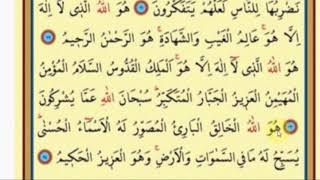 نَضْرِبُهَا لِلنَّاسِ لَعَلَّهُمْ يَتَفَكَّرُونَ ﴿٢١﴾ هُوَ اللّٰهُ الَّذ۪ي لَٓا اِلٰهَ
اِلَّا هُوَۚ عَالِمُ الْغَيْبِ وَالشَّهَادَةِۚ هُوَ الرَّحْمٰنُ الرَّح۪يمُ ﴿٢٢﴾
هُوَ اللّٰهُ الَّذ۪ي لَٓا اِلٰهَ اِلَّا هُوَۚ اَلْمَلِكُ الْقُدُّوسُ السَّلَامُ الْمُؤْمِنُ
الْمُهَيْمِنُ الْعَز۪يزُ الْجَبَّارُ الْمُتَكَبِّرُۜ سُبْحَانَ اللّٰهِ عَمَّا يُشْرِكُونَ
﴿٢٣﴾ هُوَ اللّٰهُ الْخَالِقُ الْبَارِئُ الْمُصَوِّرُ لَهُ الْاَسْمَٓاءُ الْحُسْنٰىۜ
يُسَبِّحُ لَهُ مَا فِي السَّمٰوَاتِ وَالْاَرْضِۚ وَهُوَ الْعَز۪يزُ الْحَك۪يمُ ﴿٢٤﴾